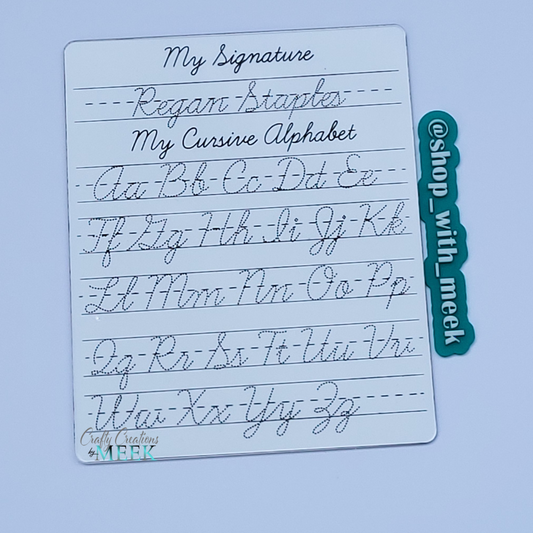 My Signature
Regan Staples
My Cursive Alphabet
Aa Bb Cc Dd Ee
Ff Gg Hh Ii Jj Kk
Ll Mm Nn Oo Pp
Qq Rr Ss Tt Uu Vv
Ww Xx Yy Zz
Crafty Creations
by MEEK
@shop_with_meek